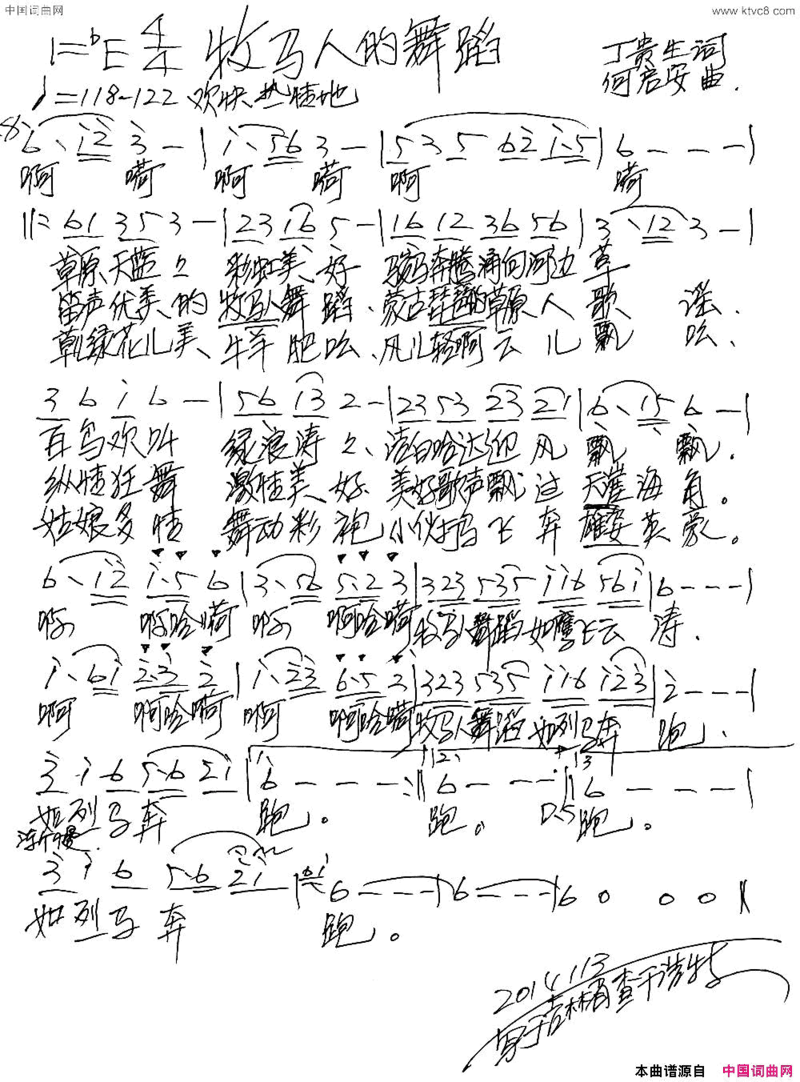 中国词曲网
www.ktvc8.com
1=♭E 4/4 牧马人的舞蹈
丁贵生词
何启安曲.
♩=118-122 欢快热情地
6· i2 3 - | i· 56 3 - | 53 5 62 i·5 | 6 - - - |
啊 嗬 啊 嗬 啊 嗬
||: 61 35 3 - | 23 16 5 - | 16 12 36 56 | 3 ·12 3 - |
草原天蓝々 彩虹美、好 骏马奔腾涌向河边草
笛声优美、的牧马人舞蹈、蒙古琵琶的草原人歌谣、
草绿花儿美、牛羊肥吆、风儿轻啊云儿飘吆、
3 6 i 6 - | 56 i3 2 - | 23 53 23 21 | 6· 15 6 - |
百鸟欢叫 绿浪涛々、洁白哈达迎风飘、飘.
纵情狂舞 激情美、好、美好歌声飘过天涯海角。
姑娘多情 舞动彩袍、小伙打马飞奔雄姿英豪。
6· i2 i·5 6 | 3· 56 5·2 3 | 323 535 116 561 | 6 - - - |
啊 啊哈嗬 啊 啊哈嗬牧马人舞蹈如鹰飞云涛.
i· 6i 2·3 2 | i· 23 6·5 2 | 323 535 ii6 i23 | 2 - - - |
啊 啊哈嗬 啊 啊哈嗬牧马人舞蹈如列马奔跑、
3 i 6 5·6 2i | 6 - - - :|| 6 - - - :|| 6 - - - |
1 2 3
D.S
如列马奔跑。跑。跑。
渐慢
3 i 6 5·6 2i | 6 - - - | 6 - - - | 6 0 0 0 ||
如列马奔跑。
2014.1.13
写于吉林省查干浩特
本曲谱源自 中国词曲网